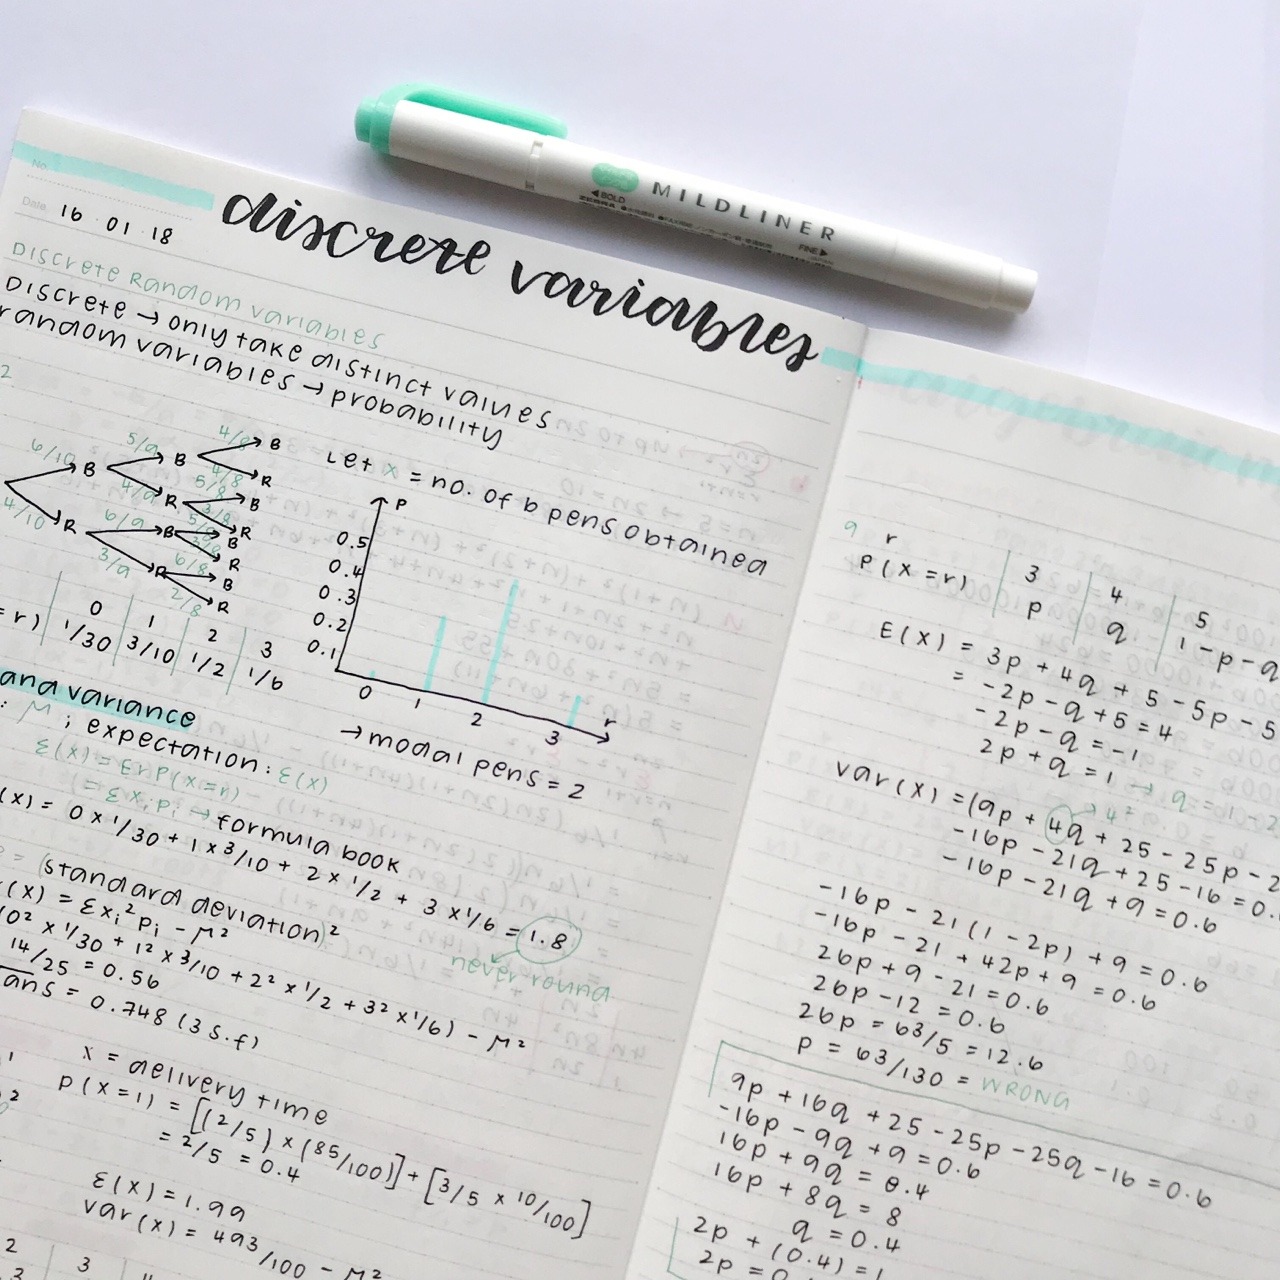 MILDLINER
BOLD
ZEBRA
FINE
No.
Date
16 01 18
discrete variables
Discrete Random variables
Discrete → only take distinct values
random variables → probability
2
6/10 B 5/9 B 4/8 B
4/8 R
4/9 R 5/8 B
3/8 R
4/10 R 6/9 B 5/8 B
3/8 R
3/9 R 6/8 B
2/8 R
Let x = no. of b pens obtained
P
0.5
0.4
0.3
0.2
0.1
0 1 2 3 r
→ modal pens = 2
0 1 2 3
= r) 1/30 3/10 1/2 1/6
and variance
: M ; expectation : E(x)
E(x) = Σr P(x=r)
= Σ xi pi → formula book
(x) = 0 x 1/30 + 1 x 3/10 + 2 x 1/2 + 3 x 1/6 = 1.8
never round
= (standard deviation)²
(x) = Σxi² pi - M²
(0² x 1/30 + 1² x 3/10 + 2² x 1/2 + 3² x 1/6) - M²
14/25 = 0.56
ans = 0.748 (3 s.f)
x = delivery time
P(x = 1) = [(2/5) x (85/100)] + [3/5 x 10/100]
= 2/5 = 0.4
E(x) = 1.99
var(x) = 493/100 - M²
2 3
9 r 3 4 5
P(x = r) p q 1 - p - q
E(x) = 3p + 4q + 5 - 5p - 5
= -2p - q + 5 = 4
-2p - q = -1
2p + q = 1 → q = 1 - 2
var(x) = (9p + 4q + 25 - 25p - 2
→ 4²
-16p - 21q + 25 - 16 = 0.
-16p - 21q + 9 = 0.6
-16p - 21(1 - 2p) + 9 = 0.6
-16p - 21 + 42p + 9 = 0.6
26p + 9 - 21 = 0.6
26p - 12 = 0.6
26p = 63/5 = 12.6
p = 63/130 = WRONG
9p + 16q + 25 - 25p - 25q - 16 = 0.6
-16p - 9q + 9 = 0.6
16p + 9q = 8.4
16p + 8q = 8
q = 0.4
2p + (0.4) = 1
2p = 0.